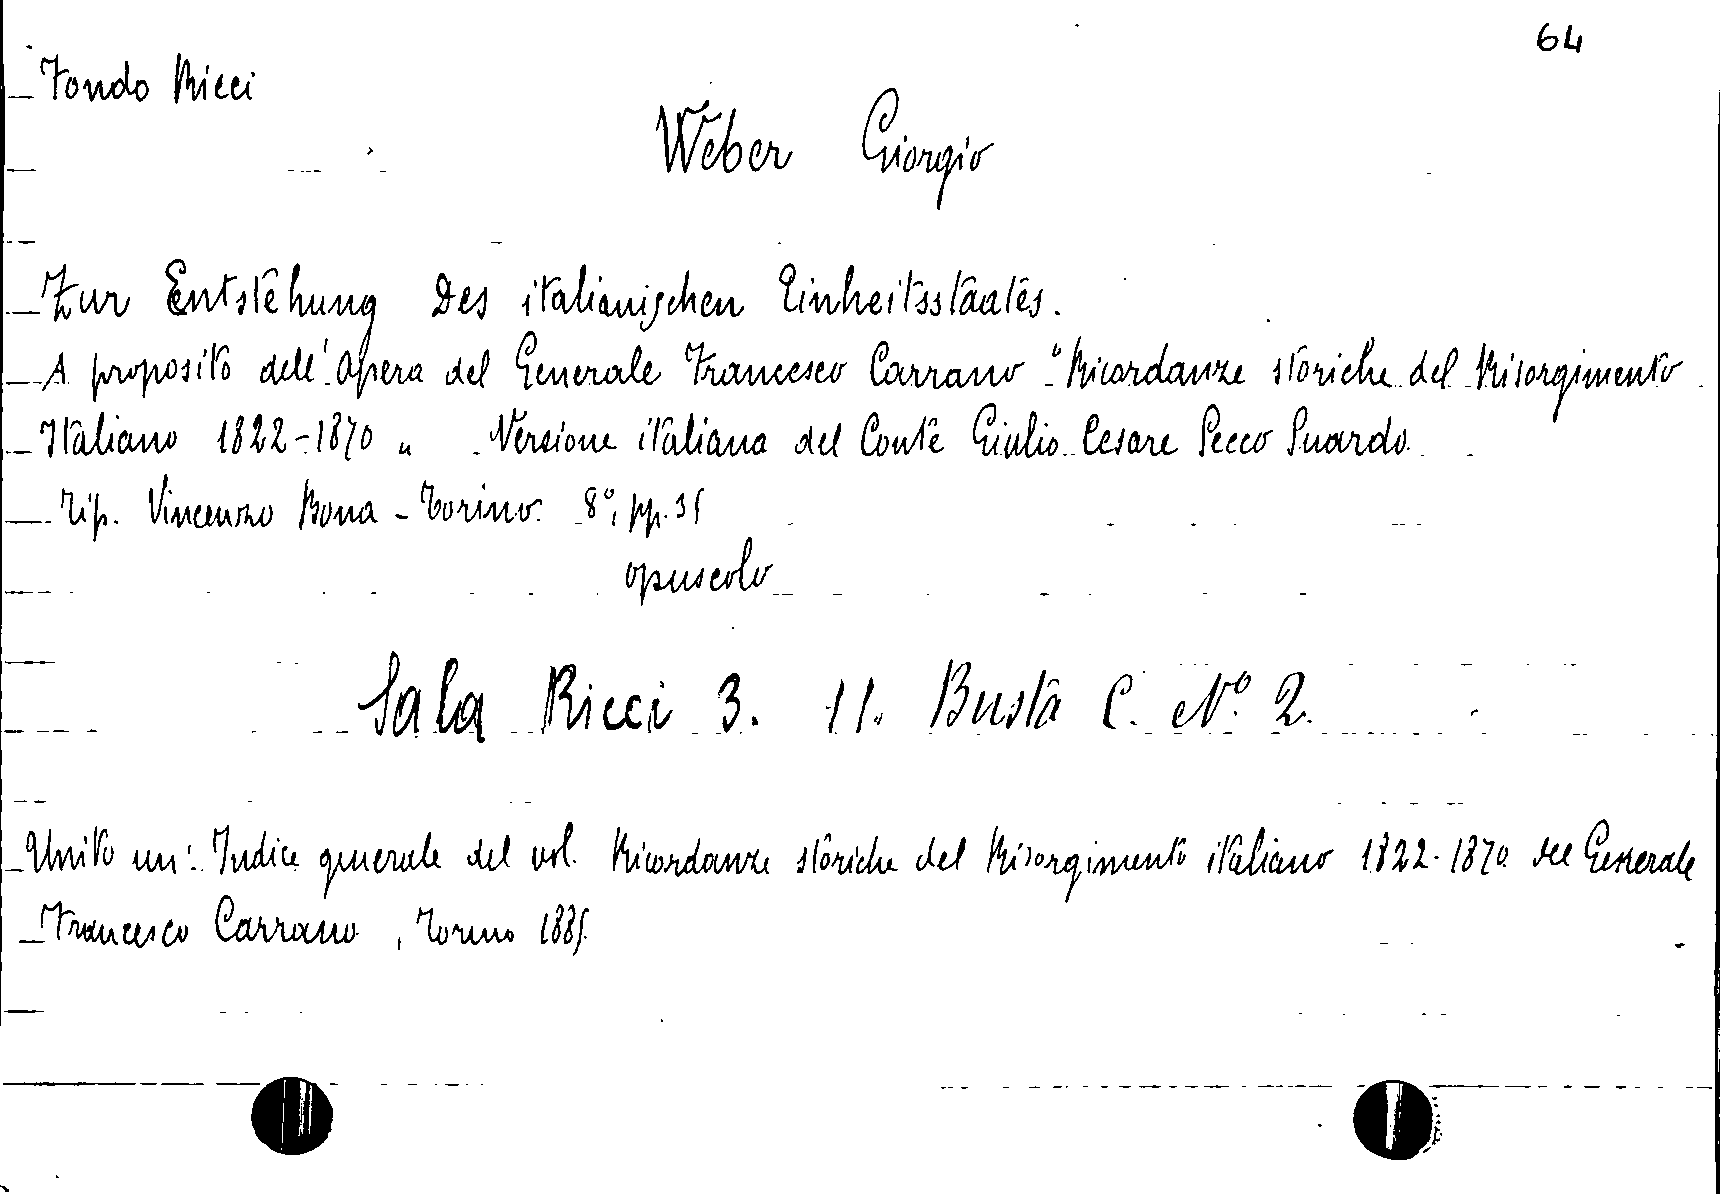 64
Fondo Ricci
Weber Giorgio
Zur Entstehung des italianischen Einheitsstaates.
A proposito dell'Opera del Generale Francesco Carrano "Ricordanze storiche del Risorgimento
Italiano 1822-1870 " Versione italiana del Conte Giulio Cesare Secco Suardo
Tip. Vincenzo Bona - Torino 8°, pp. 35
opuscolo
Sala Ricci 3. 11. Busta C. N° 2.
Unito un: Indice generale del vol. Ricordanze storiche del Risorgimento italiano 1822-1870 del Generale
Francesco Carrano, Torino 1885